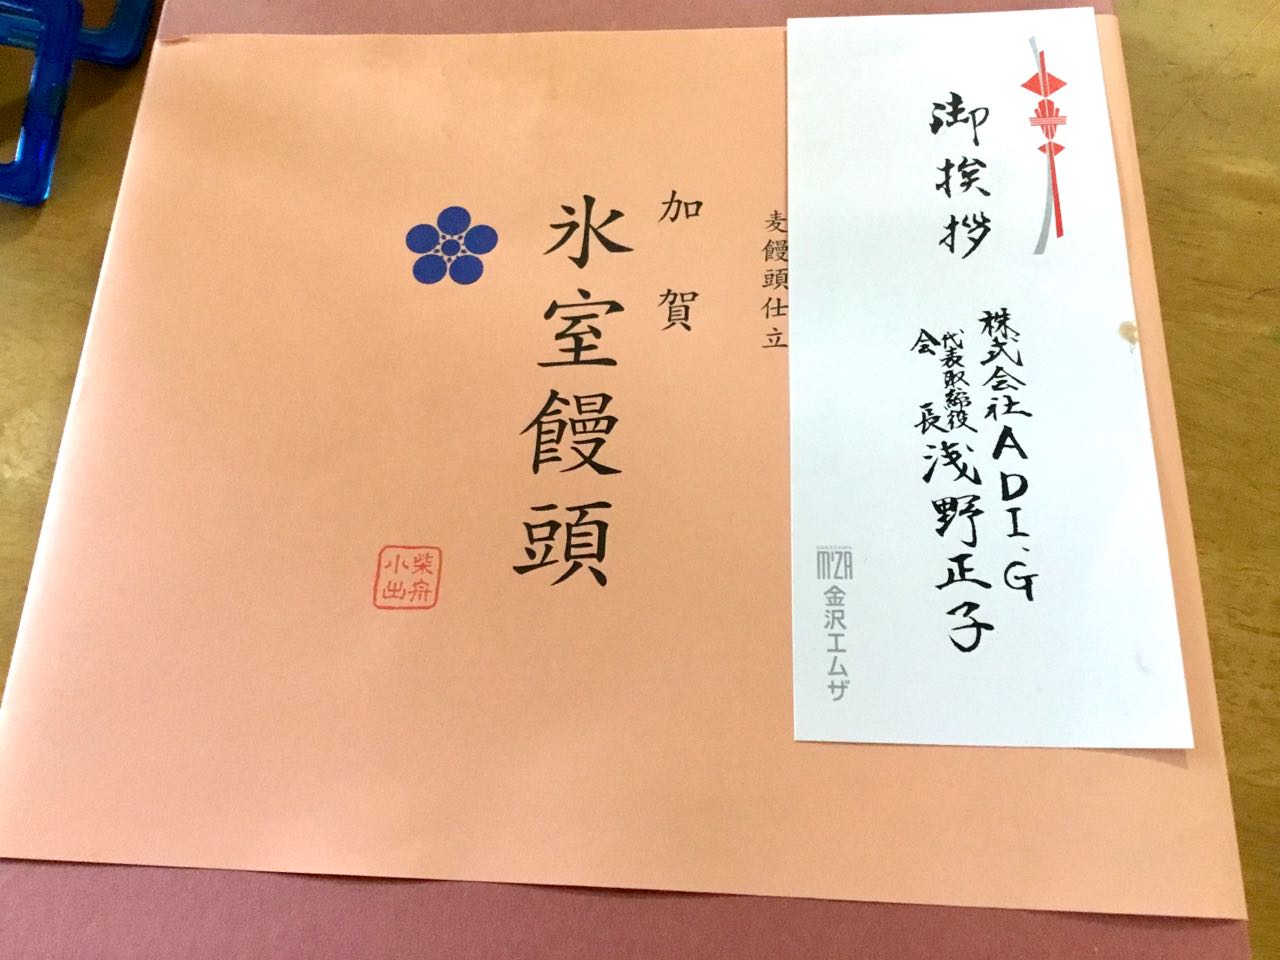 御挨拶
株式会社ADI.G
代表取締役
会長
浅野正子
KANAZAWA
M'ZA
金沢エムザ
麦饅頭仕立
加賀
氷室饅頭
柴舟
小出